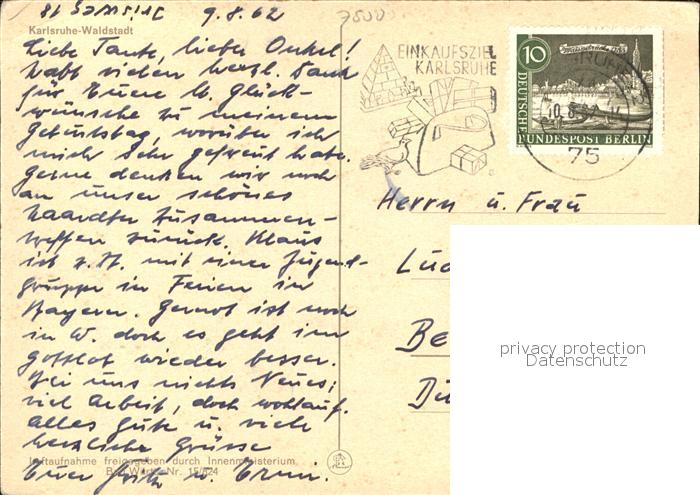 9.8.62
7500
Karlsruhe-Waldstadt
Liebe Tante, lieber Onkel!
habt vielen herzl. Dank
für Euere lb. Glück-
wünsche zu meinem
Geburtstag, worüber ich
mich sehr gefreut habe.
Gerne denken wir noch
an unser schönes
Haardter Zusammen-
treffen zurück. Klaus
ist z. Zt. mit einer Jugend-
gruppe in Ferien in
Bayern. Gernot ist noch
in W. doch es geht ihm
gottlob wieder besser.
Bei uns nichts Neues;
viel Arbeit, doch wohlauf.
Alles Gute u. viele
herzliche Grüsse
Euer Fritz u. Erni.
Luftaufnahme freigegeben durch Innenministerium
Nr. 15/624
EINKAUFSZIEL
KARLSRUHE
10
DEUTSCHE
BUNDESPOST BERLIN
75
Herrn u. Frau
privacy protection
Datenschutz